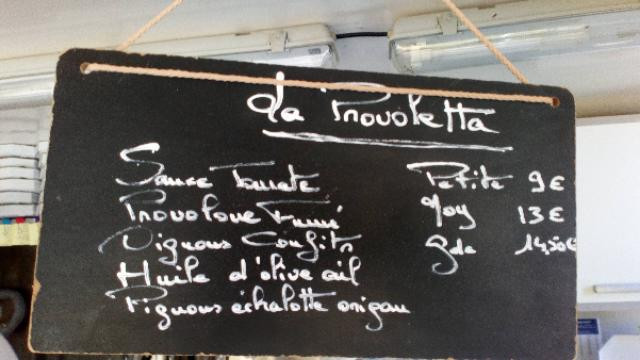 La Provoletta
Sauce Tomate
Provolone Fumé
Oignons Confits
Huile d'olive ail
Pignons échalotte origan
Petite 9€
Moy 13€
Gde 14,50€